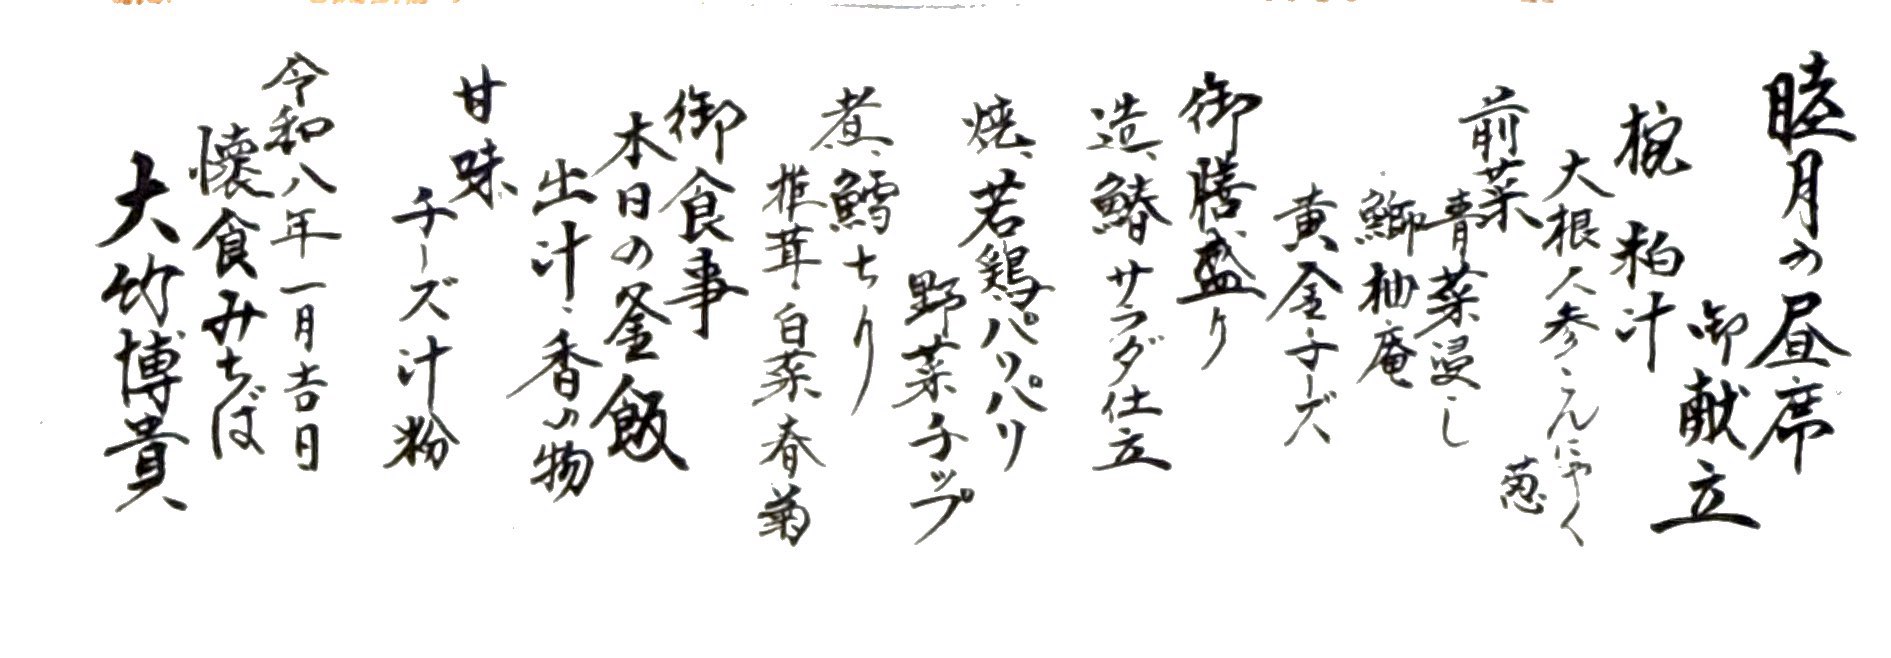 睦月の昼席
御献立
椀 粕汁
大根人参こんにゃく
葱
前菜
青菜浸し
鰤柚庵
黄金チーズ
御膳盛り
造、鰆サラダ仕立
焼、若鶏パリパリ
野菜チップ
煮、鱈ちり
椎茸・白菜春菊
御食事
本日の釜飯
出汁・香の物
甘味
チーズ汁粉
令和八年一月吉日
懐食みちば
大竹博貴